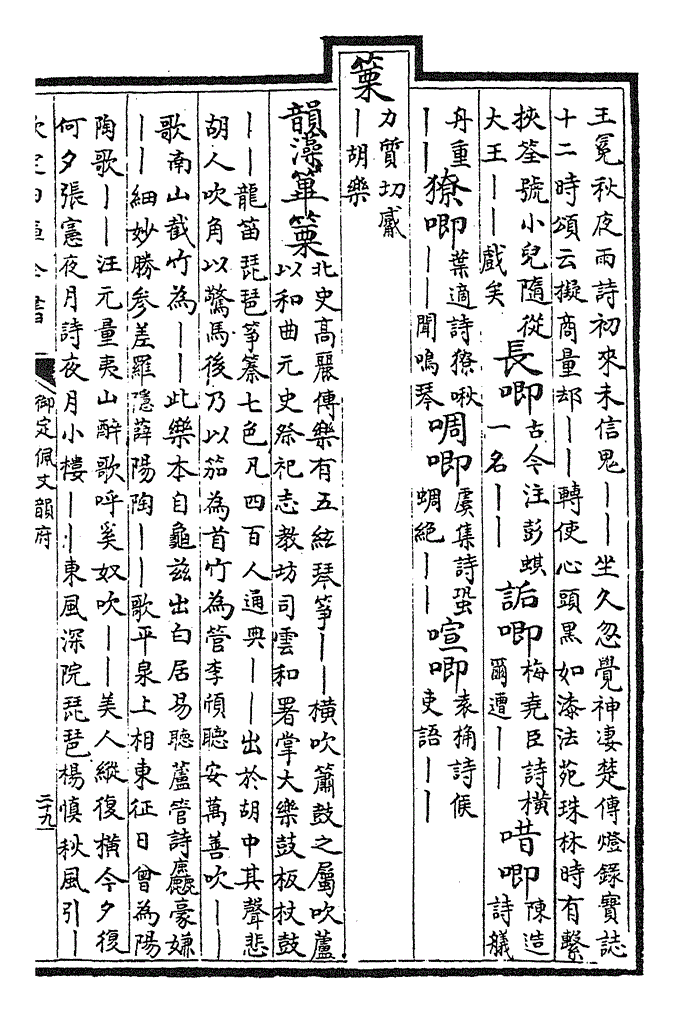 王冕秋夜雨詩初來未信鬼——坐久忽覺神凄楚傳燈錄寶誌
十二時頌云擬商量却——轉使心頭黑如漆法苑珠林時有繫
挾筌號小兒隨從
大王——戲矣
長唧
古今注彭蜞
一名——
詬唧
梅堯臣詩橫
爾遭——
唶唧
陳造
詩艤
舟重
——
獠唧
葉適詩獠啾
——聞鳴琴
啁唧
虞集詩蛩
蜩絶——
喧唧
袁桷詩候
吏語——
篥
力質切觱
—胡樂
韻藻
篳篥
北史高麗傳樂有五絃琴箏——橫吹簫鼓之屬吹蘆
以和曲元史祭祀志教坊司雲和署掌大樂鼓板杖鼓
——龍笛琵琶箏𥱧七色凡四百人通典——出於胡中其聲悲
胡人吹角以驚馬後乃以笳為首竹為管李頎聽安萬善吹——
歌南山截竹為——此樂本自龜兹出白居易聽蘆管詩麤豪嫌
——細妙勝參差羅隱薛陽陶——歌平泉上相東征日曾為陽
陶歌——汪元量夷山醉歌呼奚奴吹——美人縱復橫今夕復
何夕張憲夜月詩夜月小樓——東風深院琵琶楊慎秋風引—
御定佩文韻府
二十九